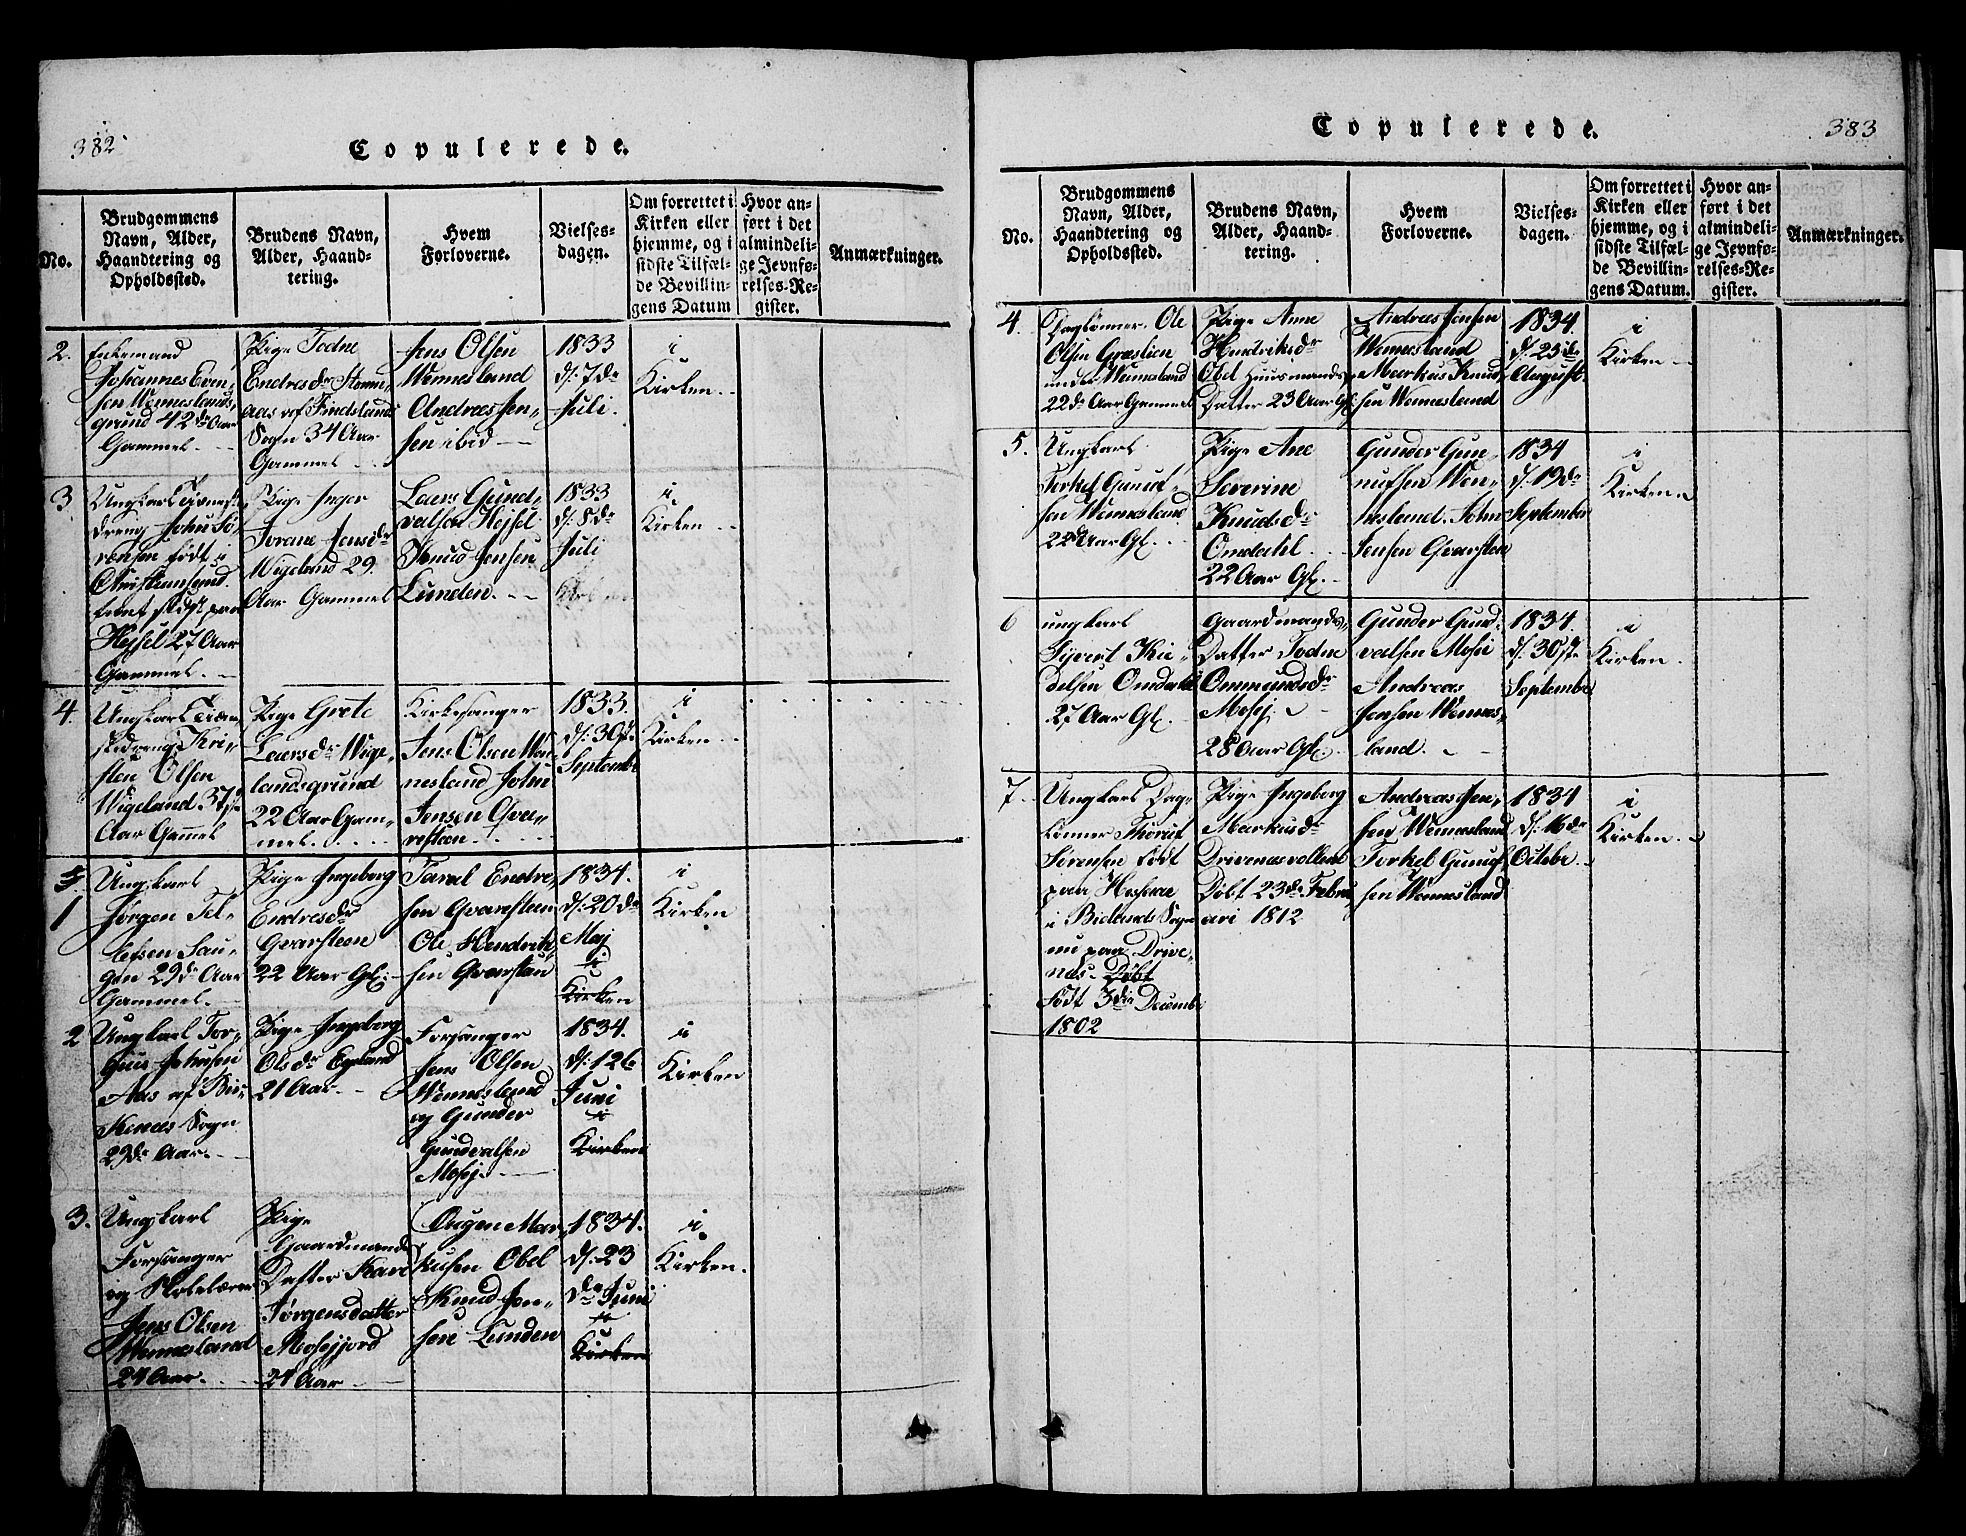 382
Copulerede.
No.
Brudgommens
Navn, Alder,
Haandtering og
Opholdssted.
Brudens Navn,
Alder, Haand-
tering.
Hvem
Forloverne.
Vielses-
dagen.
Om forrettet i
Kirken eller
hjemme, og i
sidste Tilfæl-
de Bevillin-
gens Datum
Hvor an-
ført i det
almindeli-
ge Jevnfø-
relses-Re-
gister.
Anmærkninger.
2.
Enkemand
Johannes Even-
sen Wenneslands
grund 42de Aar
Gammel.
Pige Todne
Endresdr
aas af Findslands
Sogn 34 Aar
Gammel
Jens Olsen
Wennesland
Andreas Jen-
sen ibid
1833
d. 7de
Juli.
i
Kirken.
3
Ungkarl Tienest
dreng John Sø-
rensen født i
Christiansand
paa
Hessel 27 Aar
Gammel.
Pige Inger
Torane Jensdr
Wigeland 29.
Aar Gammel
Laers Gund-
valsen Hessel
Knud Jensen
Lunden.
1833
d. 8de
Juli
i
Kirken
4.
Ungkarl Tiene-
stedreng Kri-
sten Olsen
Wigeland 37
Aar Gammel
Pige Grete
Laersdr Wige-
landsgrund
22 Aar Gam-
mel.
Kirkesanger
Jens Olsen Wen-
nesland John
Jensen Qva-
resteen
1833.
d. 30te
September
i
Kirken
1
Ungkarl
Jørgen Tel-
lefsen Hau-
gen 29de Aar
Gammel.
Pige Ingeborg
Endresdr
Qvarsteen
22 Aar Gl.
Taral Endre-
sen Qvaresteen
Ole Hendrik-
sen Qvarsteen
1834.
d. 20de
Maj
i
Kirken
i
Kirken
2
Ungkarl Tor-
gius Johnsen
Aas af Bir-
kenes Sogn
29de Aar.
Pige Ingeborg
Olsdr Egeland
21 Aar.
Forsanger
Jens Olsen
Wennesland
og Gunder
Gundvalsen
Mosej.
1834.
d. 126
Juni
i
Kirken
i
Kirken
3.
Ungkarl
Forsanger
og Skolelærer
Jens Olsen
Wennesland
24 Aar.
Pige
Gaardmands
Datter Kari
Jørgensdatter
Mosejjord
24 Aar
Ougen Mar-
kusen Obel
Knud Jen-
sen Lunden
1834.
d. 23
de Juni
i
Kirken
i
Kirken.
Copulerede.
383
No.
Brudgommens
Navn, Alder,
Haandtering og
Opholdssted.
Brudens Navn,
Alder, Haand-
tering.
Hvem
Forloverne.
Vielses-
dagen.
Om forrettet i
Kirken eller
hjemme, og i
sidste Tilfæl-
de Bevillin-
gens Datum.
Hvor an-
ført i det
almindeli-
ge Jevnfø-
relses-Re-
gister.
Anmærkninger.
4.
Daglønner Ole
Olsen Græslien
under Wennesland
22de Aar Gammel
Pige Anne
Hendriksdr
Obel Huusmands
Datter 23 Aar Gl.
Andreas Jensen
Wennesland
Markus Knud-
sen Wennesland
1834.
d. 25de
August.
i
Kirken
5.
Ungkarl
Torkel Gunuf-
sen Wennesland
22de Aar Gl.
Pige Ane
Severine
Knudsdr
Omdahl
22 Aar Gl.
Gunder Gun-
nufsen Wen-
nesland. John
Jensen Qvarsteen
1834
d. 19de
September
i
Kirken
6
ungkarl
Syvert Kie-
delsen Omdahl
27 Aar Gl.
Gaardmands
Datter Todne
Ommundsdr
Mosej.
28 Aar Gl.
Gunder Gund-
valsen Mosei
Andreas
Jensen Wennes-
land.
1834.
d. 30ste
September
i
Kirken.
7.
Ungkarl Dag-
lønner Thoruf
Sørensen født
paa
i Bielands Sogn
nu paa Drive-
nes. Døbt
født 3die Decemb
1802
Pige Ingeborg
Markusdr
Drivenesvollene
Døbt 23de Febru
ari 1812
Andreas Jen-
sen Wennesland
Torkel Gunuf-
sen Wennesland
1834
d. 16de
Octobr
i
Kirken.